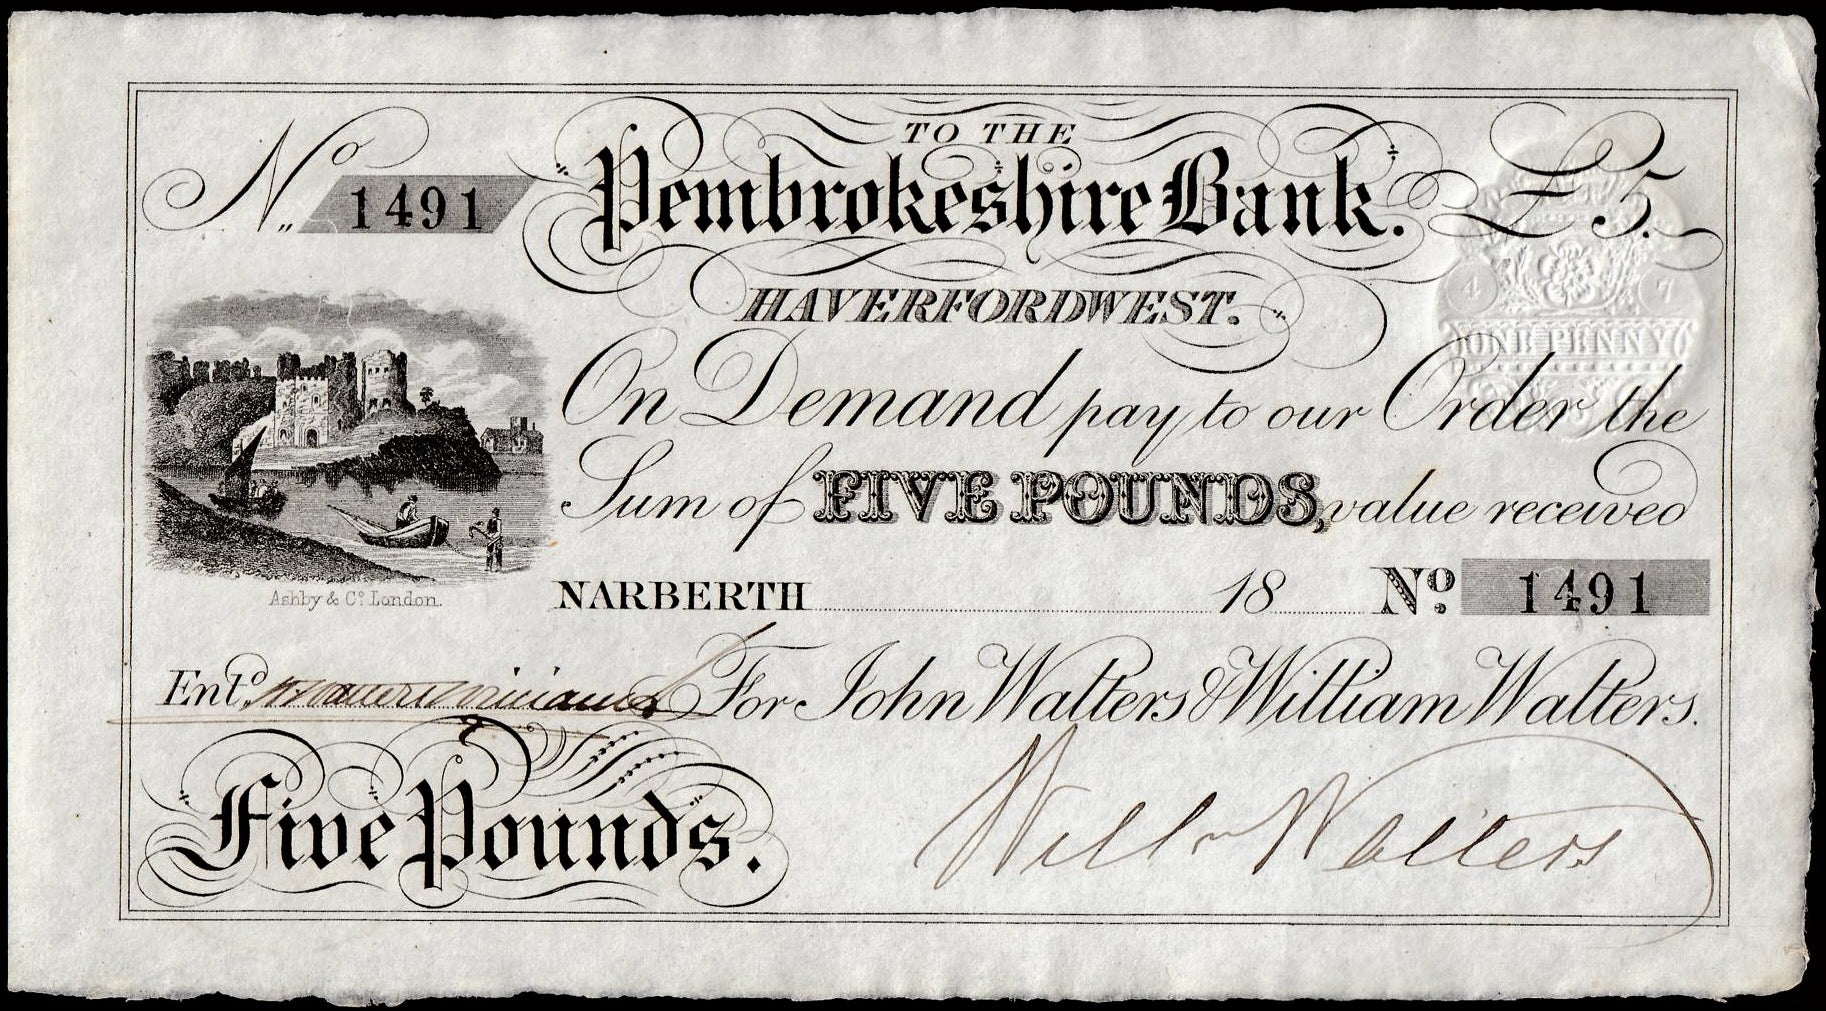 TO THE
No. 1491 Pembrokeshire Bank. £5.
HAVERFORDWEST.
4 7
ONE PENNY
On Demand pay to our Order the
Sum of FIVE POUNDS, value received
Ashby & Co. London.
NARBERTH 18 No. 1491
Entd. For John Walters & William Walters.
Five Pounds. Willm Walters